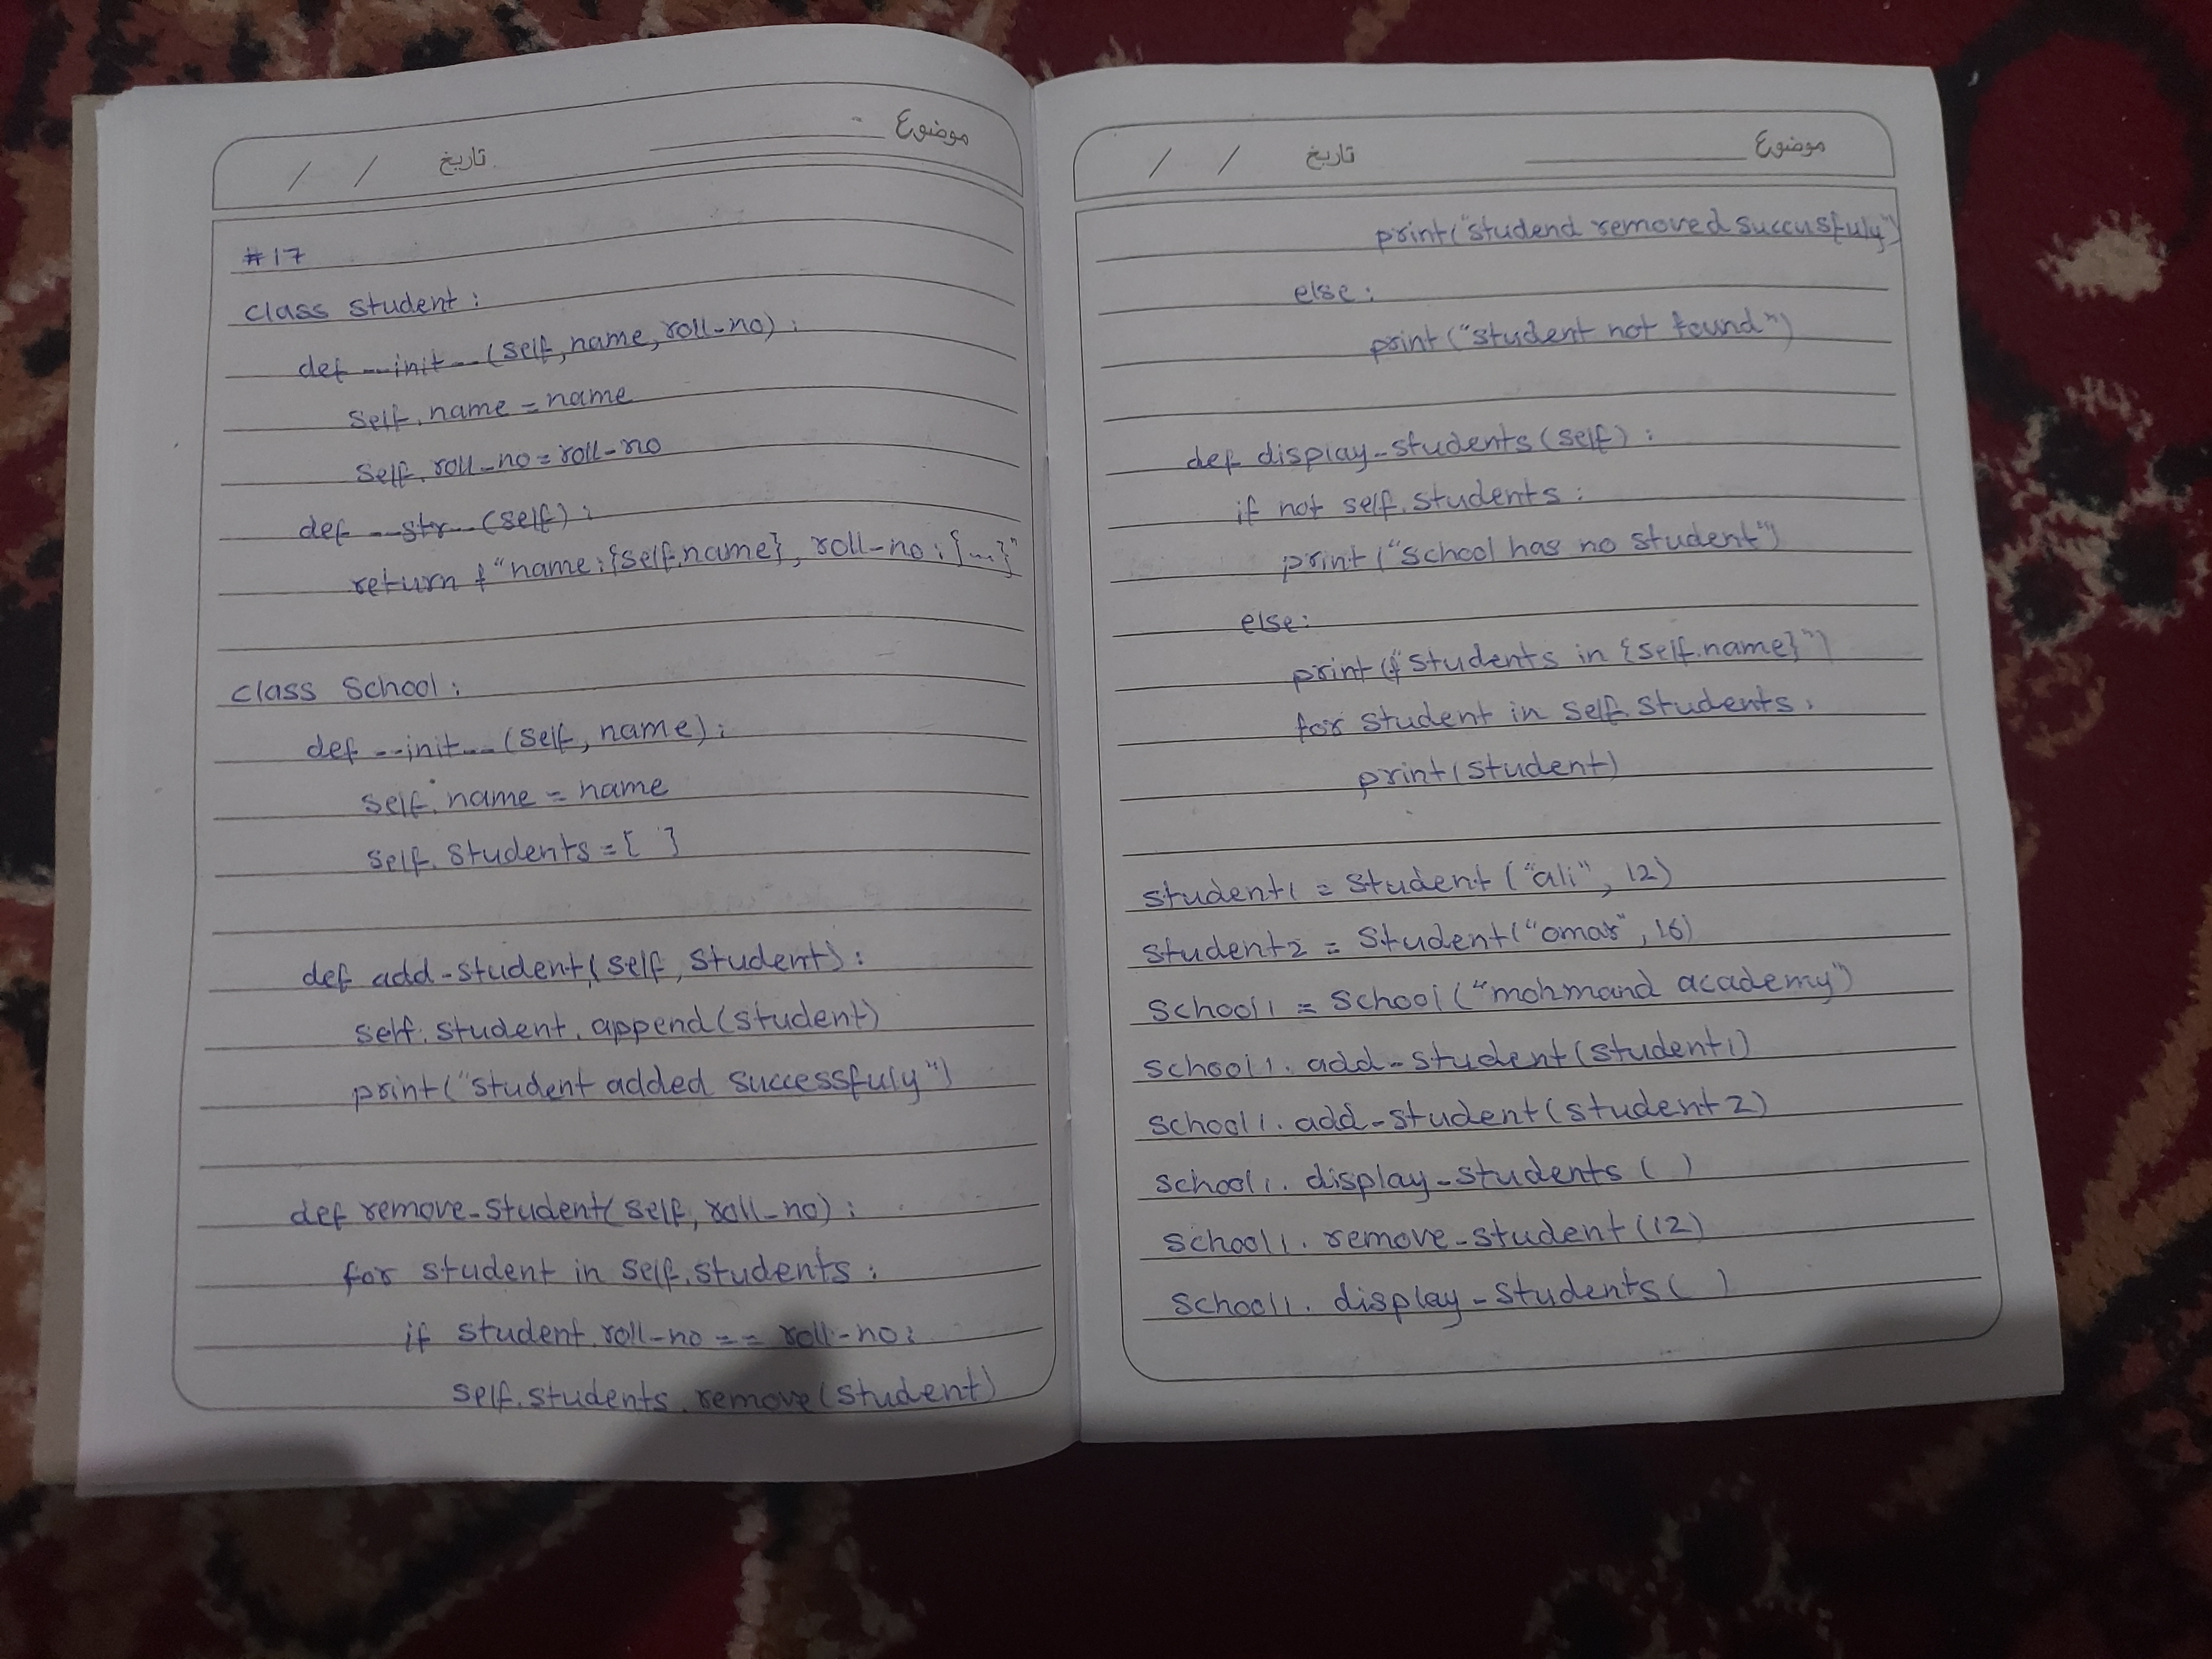 تاریخ / / موضوع
#17
class student :
def __init__(self,name,roll_no) :
self.name = name
self.roll_no = roll_no
def __str__(self) :
return f"name:{self.name}, roll_no:{~~}"
class School :
def __init__(self, name) :
self.name = name
self.students = [ ]
def add_student(self, student) :
self.student.append(student)
print("student added successfully")
def remove_student(self, roll_no) :
for student in self.students :
if student.roll_no == roll_no :
self.students.remove(student)
تاریخ / / موضوع
print("studend removed succusfully")
else :
print("student not found")
def display_students(self) :
if not self.students :
print("school has no student")
else :
print(f"students in {self.name}")
for student in self.students :
print(student)
student1 = student("ali", 12)
student2 = student("omar", 16)
school1 = school("mohmand academy")
school1.add_student(student1)
school1.add_student(student2)
school1.display_students( )
school1.remove_student(12)
school1.display_students( )